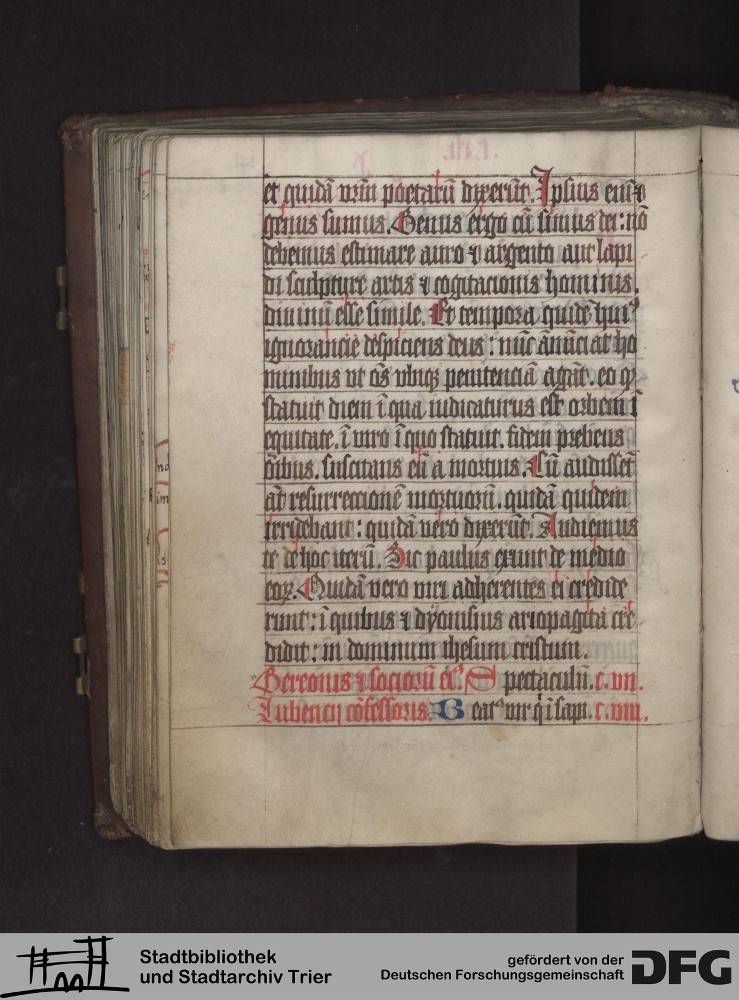 et quidā vr̄m poetarū dixerūt. Ipsius eni᷒ ⁊
genus sumus. Genus ergo cū simus dei: nō
debemus estimare auro ⁊ argento aut lapi
di sculpture artis ⁊ cogitacionis hominis,
diuinū esse simile. Et tempora quidē huiꝰ
ignorancie despiciens deus: nūc ānūciat ho
minibus vt oēs vbiqꝫ penitenciā agāt. eo ꝙ
statuit diem ī qua iudicaturus est orbem ī
equitate. ī viro ī quo statuit. fidem prebens
oībus. suscitans eū a mortuis. Cū audissēt
aūt resurreccionē mortuorū. quidā quidem
irridebant: quidā vero dixerūt. Audiemus
te de hoc iterū. Sic paulus exiuit de medio
eoꝝ. Quidā vero viri adherentes ei credide
runt: ī quibus ⁊ dyonisius ariopagita cre
didit: in dominum ihesum cristum.
Gereonis ⁊ sociorū eiꝰ. Spectaculū. c. vii.
Lubencij cōfessoris. Beatꝰ vir q̇ ī sapi. c. viii.
Stadtbibliothek
und Stadtarchiv Trier
gefördert von der
Deutschen Forschungsgemeinschaft
DFG